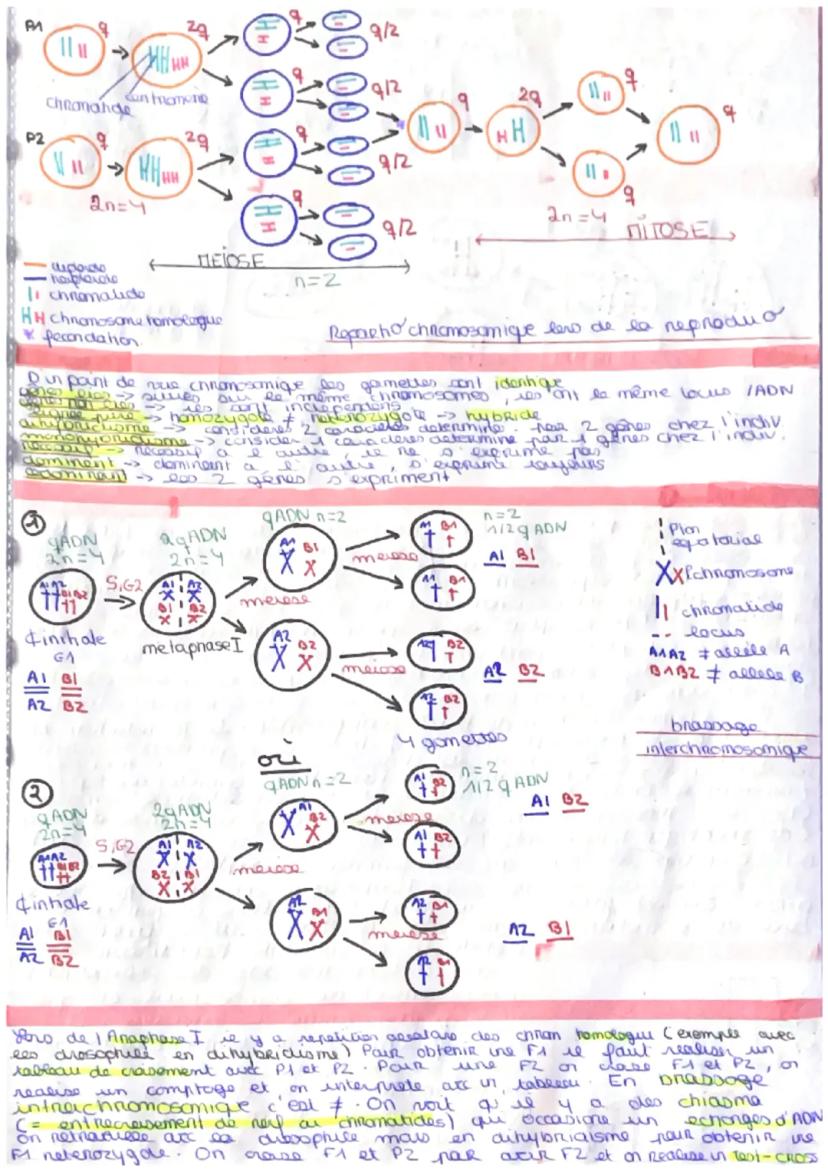 P1 q 2q q q/2
chromatide centromère
q q/2
q 2q q q
P2 q 2q q q/2
2n=4
q q/2
q
2n=4
MITOSE
MEIOSE
n=2
diploïde
haploïde
chromatide
chromosome homologue
fecondation
chromosomique lors de la reproduc°
D'un point de vue chromosomique les gamettes sont identique
gènes liés -> situés sur le même chromosomes, ils ont le même locus /ADN
-> ils sont independants
-> homozygote ≠ heterozygote -> hybride
dihybridisme -> considère 2 caractères determine par 2 gènes chez l'indiv
monohybridisme -> consider 1 caractères determine par 1 gènes chez l'indiv.
recessif -> recessif à l'autre, il ne s'exprime pas
dominent -> dominent à l'autre, s'exprime toujours
codominent -> les 2 gènes s'expriment
1
qADN
2n=4
2qADN
2n=4
qADN n=2
n=2
1/2 qADN
A1 B1
A1A2 B1B2
S,G2
A1 A2
B1 B2
metaphase I
A1 B1
meiose
meiose
A1 B1
A1 B1
G1
A1 B1
A2 B2
A2 B2
meiose
A2 B2
A2 B2
A2 B2
4 gamettes
Plan
equatorial
chromosome
chromatide
locus
A1A2 ≠ allèle A
B1B2 ≠ allele B
brassage
interchromosomique
où
2
qADN
2n=4
2qADN
2n=4
qADN n=2
n=2
1/2 qADN
A1 B2
A1A2 B1B2
S,G2
A1 A2
B2 B1
meiose
A1 B2
meiose
A1 B2
A1 B2
G1
A1 B1
A2 B2
A2 B1
meiose
A2 B1
A2 B1
A2 B1
Lors de l'Anaphase I il y a repetition des chrom homologue (exemple avec
les drosophile en dihybridisme) Pour obtenir une F1 il faut realiser un
tableau de croisement avec P1 et P2. Pour une F2 on croise F1 et P2, on
realise un comptage et on interprete avc un tableau. En brassage
intrachromosomique c'est ≠. On voit qu'il y a des chiasma
(= entrecroisement de chromatides) qui occasione un echanges d'ADN
on avc la drosophile mais en dihybridisme pour obtenir une
F1 heterozygote. On croise F1 et P2 par avoir F2 et on realise un test-cross